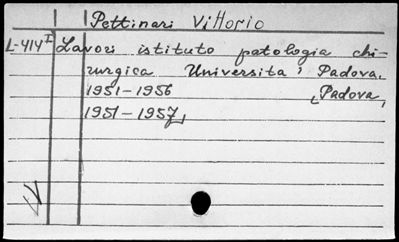 Pettinari Vittorio
L-414ᴵ Lavori istituto patologia chi-
rurgica Università, Padova.
1951-1956 [Padova,
1951-1957]